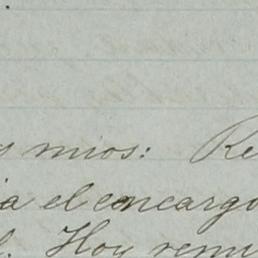 mios: Re
ia el encargo
l. Hoy remi